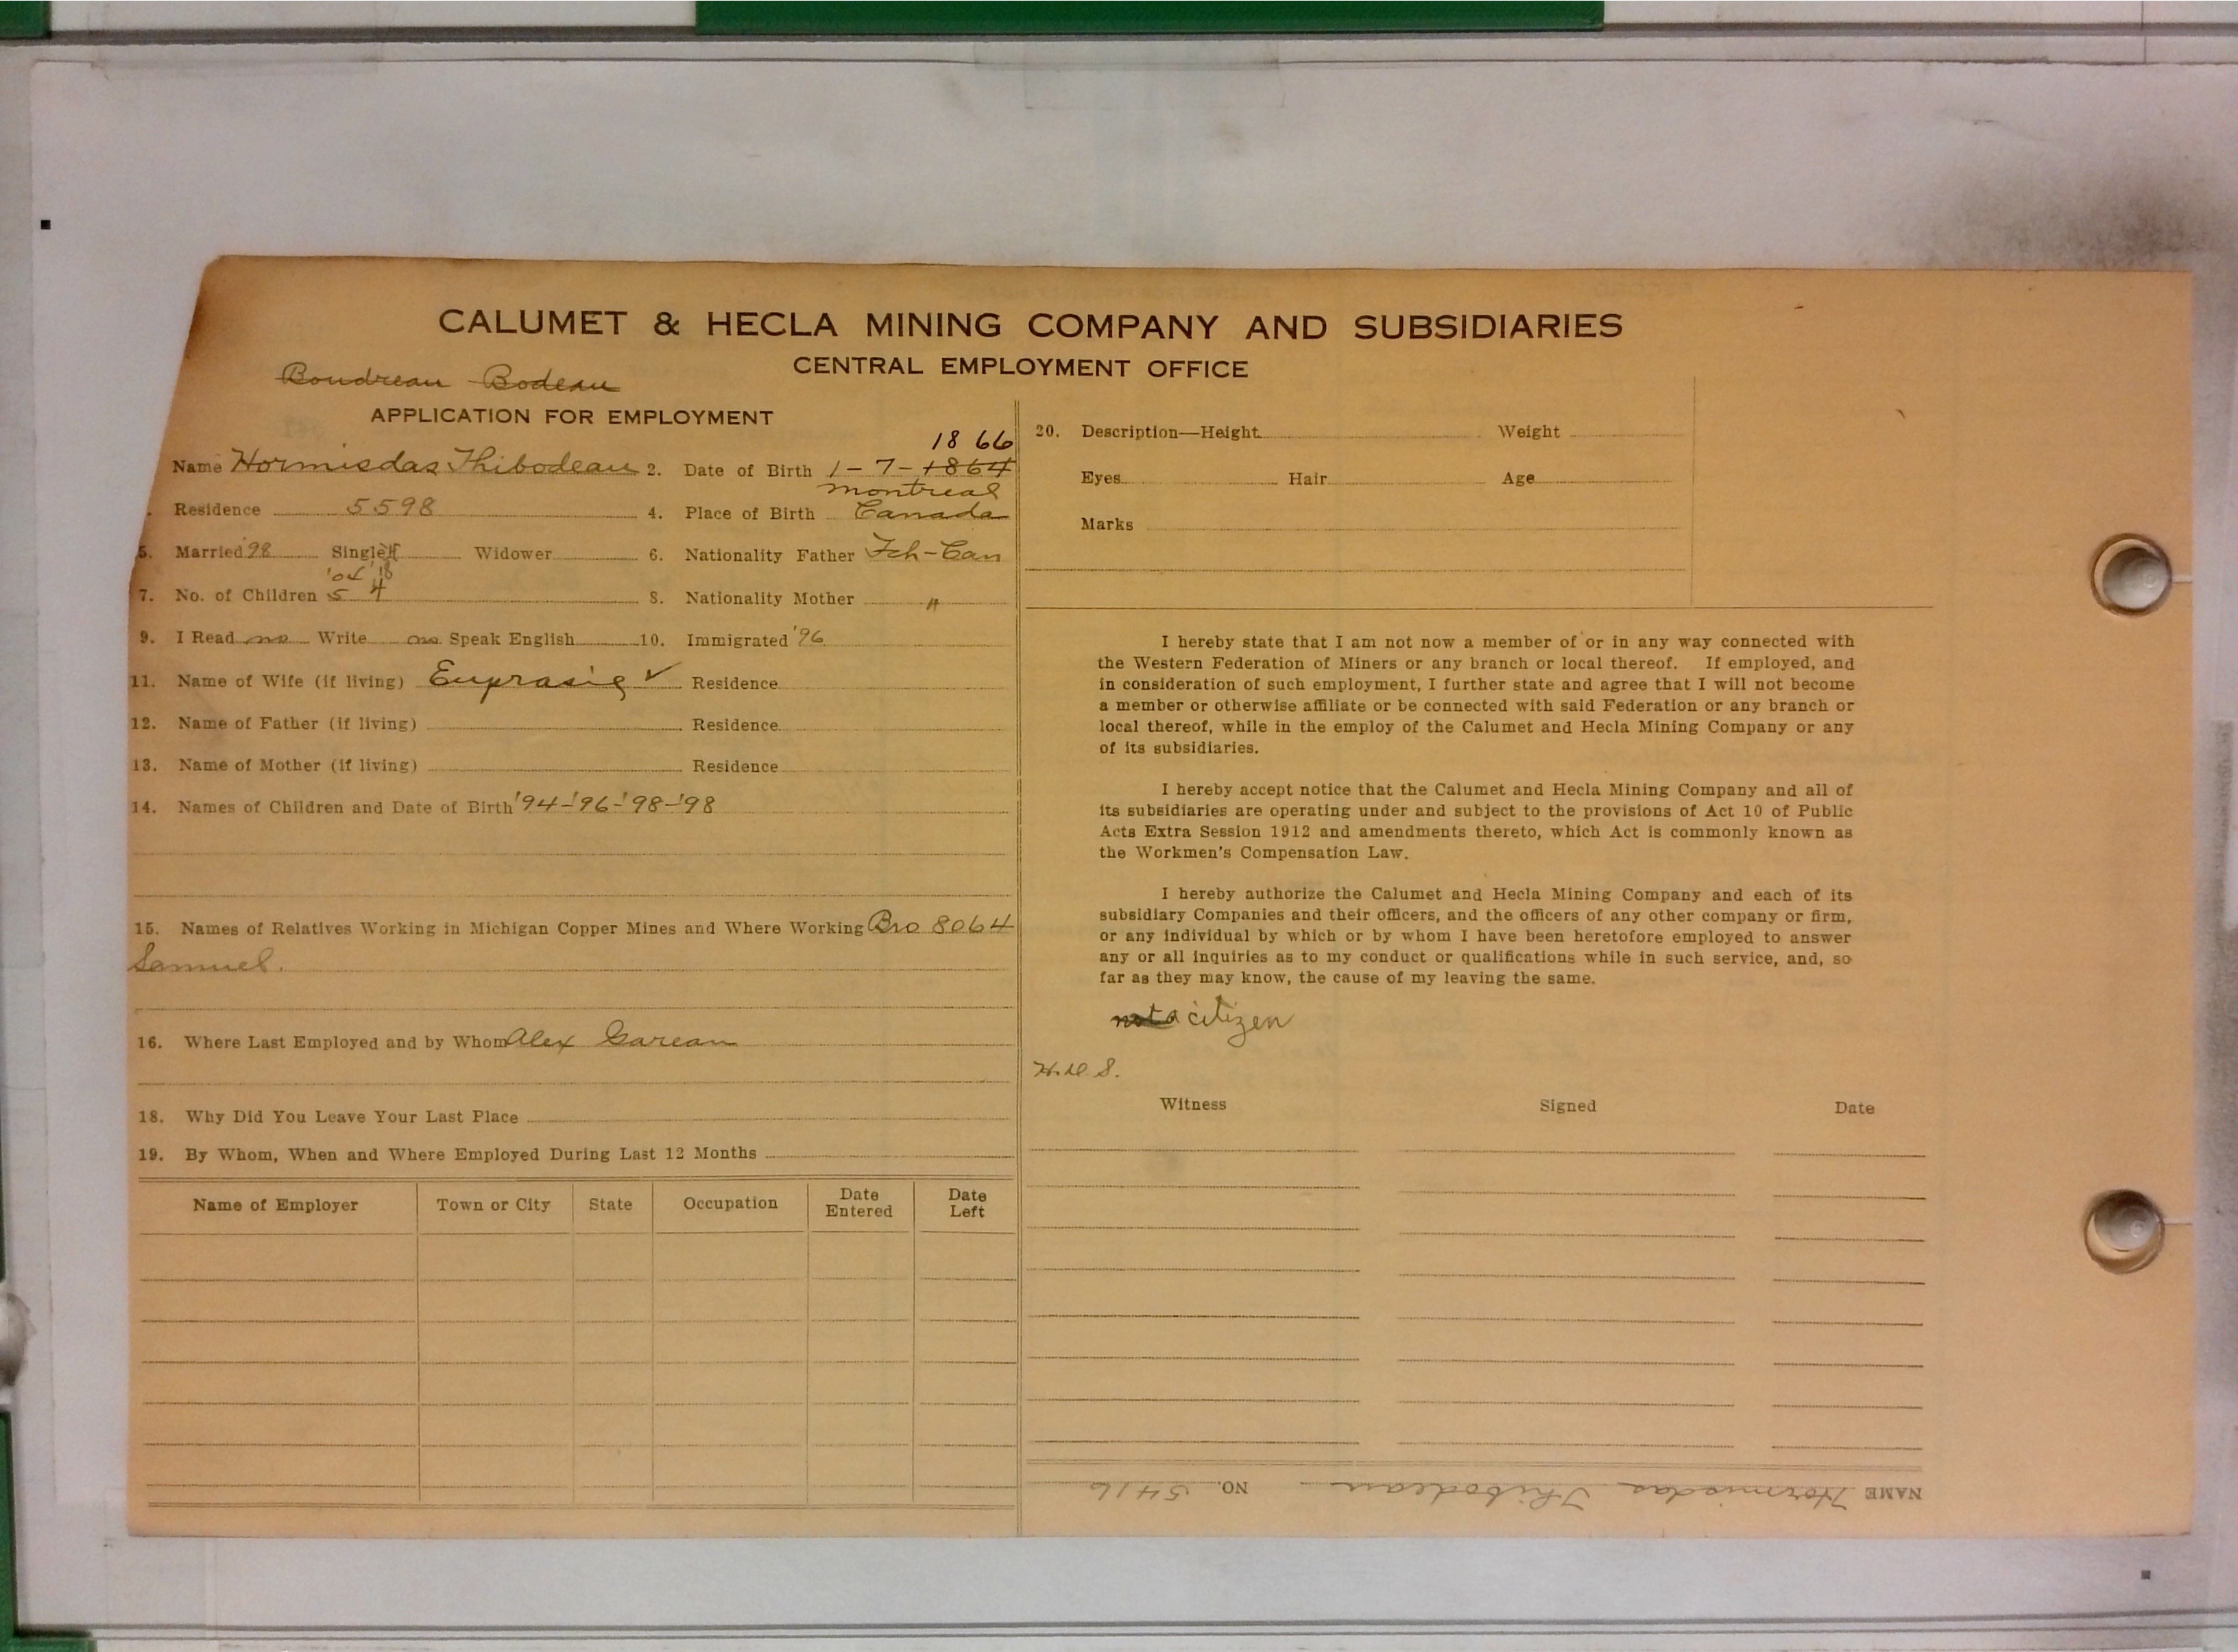 CALUMET & HECLA MINING COMPANY AND SUBSIDIARIES
CENTRAL EMPLOYMENT OFFICE
Boudreau Bodeau
APPLICATION FOR EMPLOYMENT
1866
Name Hormisdas Thibodeau 2. Date of Birth 1-7-1864
montreal
Residence 5598 4. Place of Birth Canada
5. Married '98 Single Widower 6. Nationality Father Fch-Can
'04 '18
7. No. of Children 5 4 8. Nationality Mother "
9. I Read no Write no Speak English 10. Immigrated '96
11. Name of Wife (if living) Euprasie ✓ Residence
12. Name of Father (if living) Residence
13. Name of Mother (if living) Residence
14. Names of Children and Date of Birth '94-'96-'98-'98
15. Names of Relatives Working in Michigan Copper Mines and Where Working Bro 8064
Samuel.
16. Where Last Employed and by Whom Alex Gareau
18. Why Did You Leave Your Last Place
19. By Whom, When and Where Employed During Last 12 Months
Name of Employer Town or City State Occupation Date Entered Date Left
20. Description—Height Weight
Eyes Hair Age
Marks
I hereby state that I am not now a member of or in any way connected with
the Western Federation of Miners or any branch or local thereof. If employed, and
in consideration of such employment, I further state and agree that I will not become
a member or otherwise affiliate or be connected with said Federation or any branch or
local thereof, while in the employ of the Calumet and Hecla Mining Company or any
of its subsidiaries.
I hereby accept notice that the Calumet and Hecla Mining Company and all of
its subsidiaries are operating under and subject to the provisions of Act 10 of Public
Acts Extra Session 1912 and amendments thereto, which Act is commonly known as
the Workmen's Compensation Law.
I hereby authorize the Calumet and Hecla Mining Company and each of its
subsidiary Companies and their officers, and the officers of any other company or firm,
or any individual by which or by whom I have been heretofore employed to answer
any or all inquiries as to my conduct or qualifications while in such service, and, so
far as they may know, the cause of my leaving the same.
not a citizen
Witness Signed Date
NAME Hormisdas Thibodeau NO. 5416